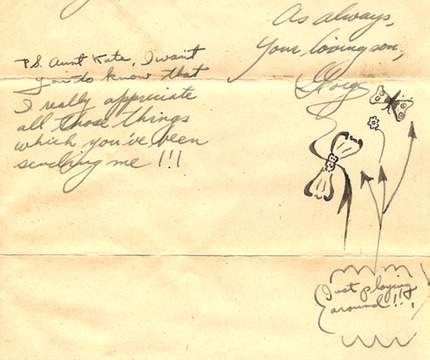 As always,
Your loving son,
P.S. Aunt Kate, I want
you to know that
I really appreciate
all those things
which you've been
sending me !!!
Just playing
around!!!